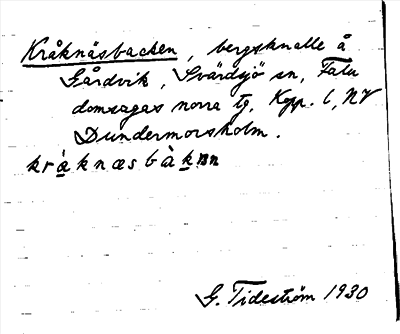 Kråknäsbacken, bergsknalle å
Gårdvik, Svärdsjö sn, Falu
domsagas norra tg, Kopp. l, NV
Dundermorsholm.
kràknæsbàkɴn
G. Tideström 1930